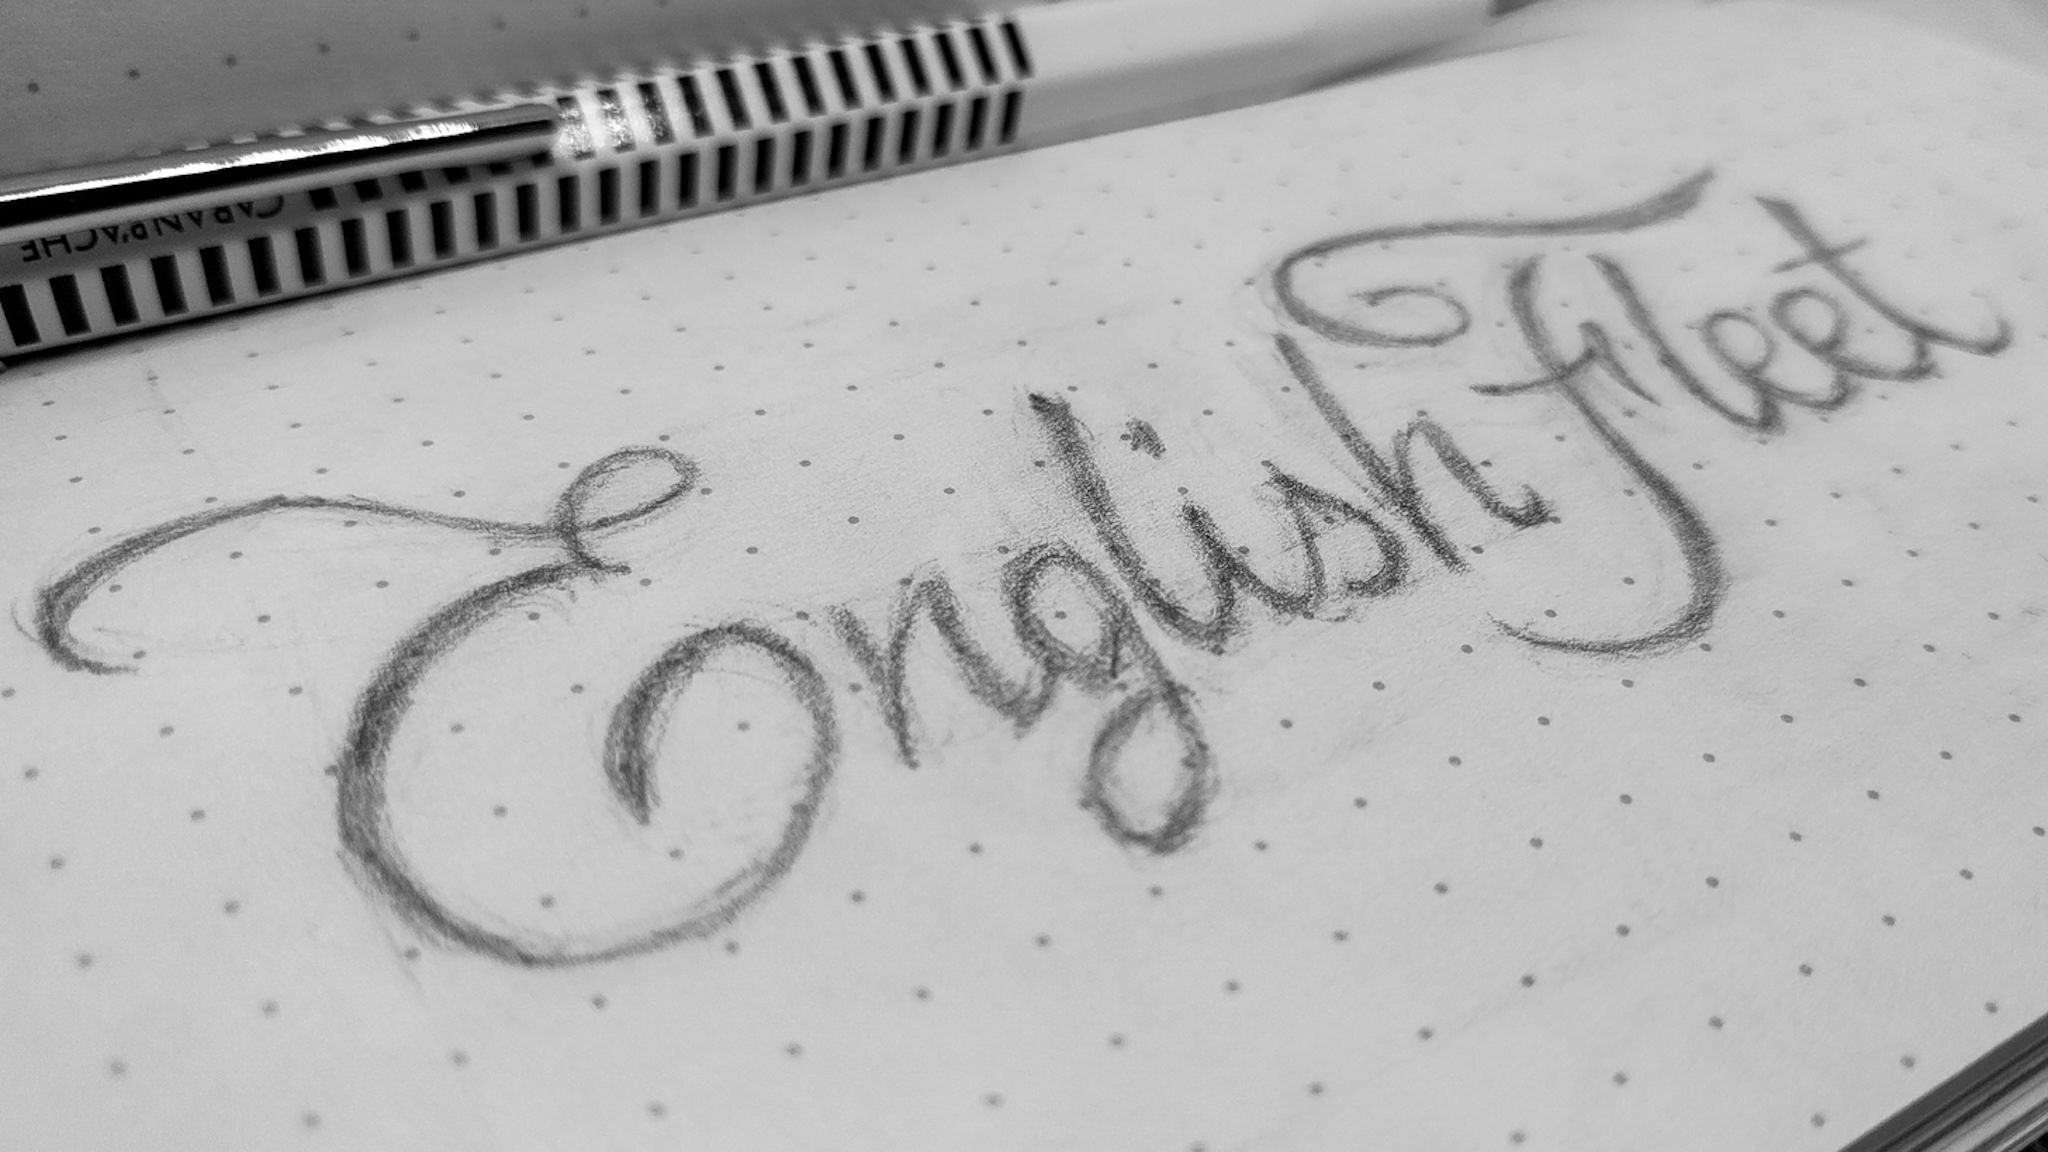 CARAN D'ACHE
English Fleet